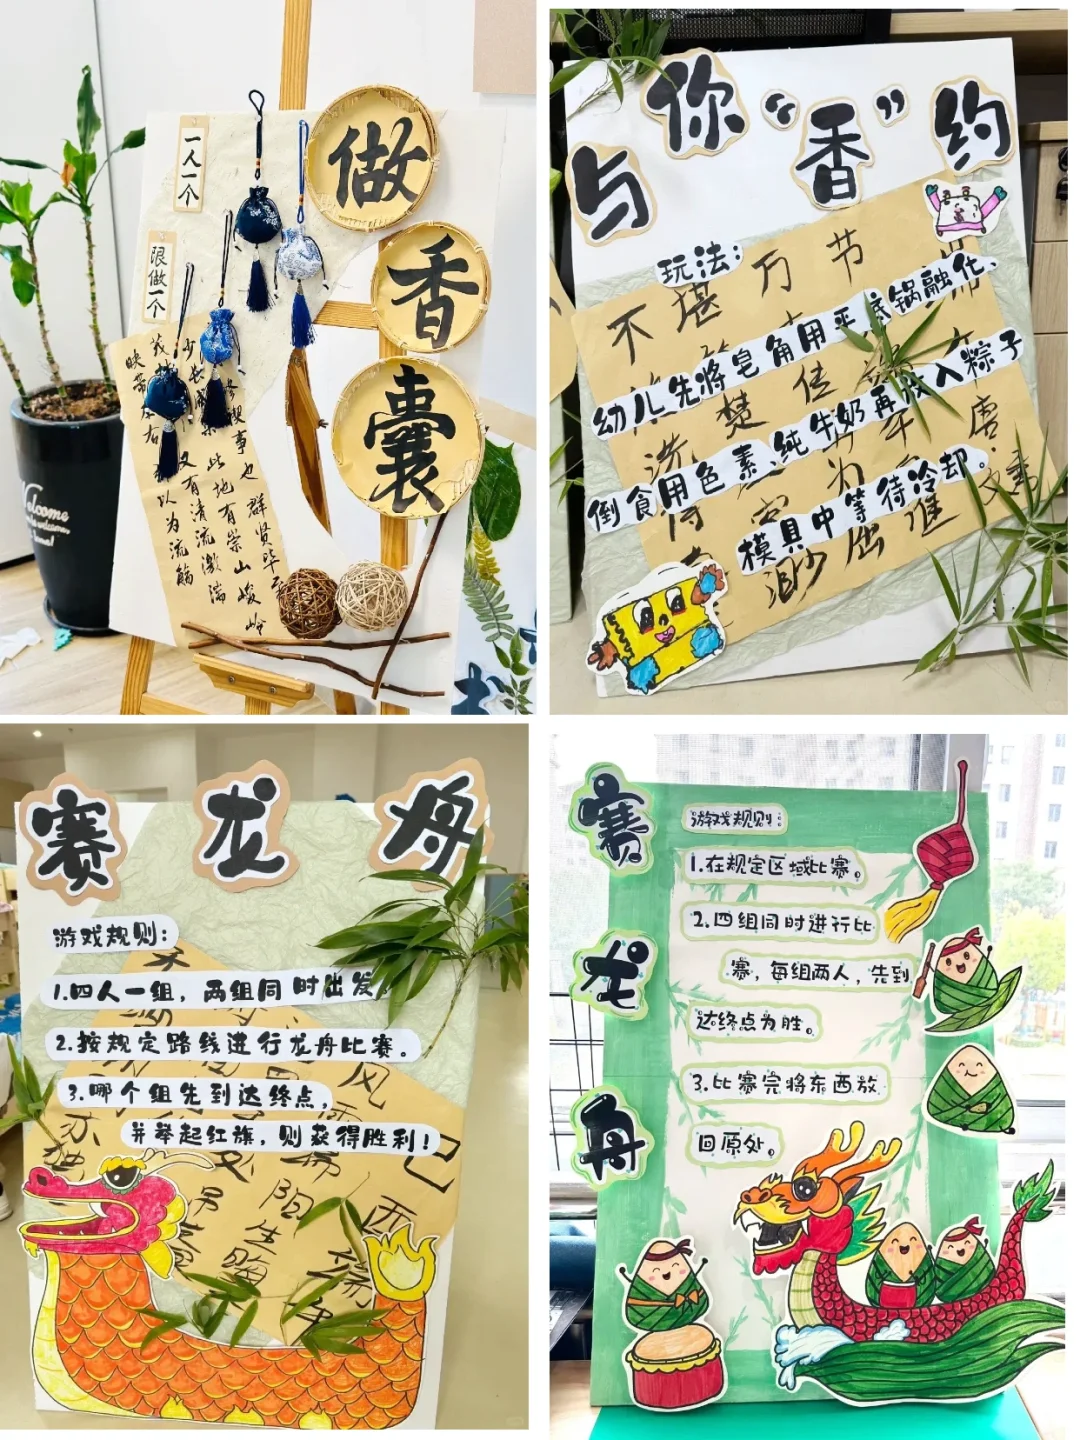 做
香
囊
一人一个
限做一个
此地有崇山峻岭
又有清流激湍
以为流觞
Welcome
与你“香”约
玩法：
幼儿先将皂角用平底锅融化、
倒食用色素、纯牛奶再放入粽子
模具中等待冷却。
赛龙舟
游戏规则：
1.四人一组，两组同时出发
2.按规定路线进行龙舟比赛。
3.哪个组先到达终点，
并举起红旗，则获得胜利！
赛龙舟
游戏规则：
1.在规定区域比赛。
2.四组同时进行比
赛，每组两人，先到
达终点为胜。
3.比赛完将东西放
回原处。